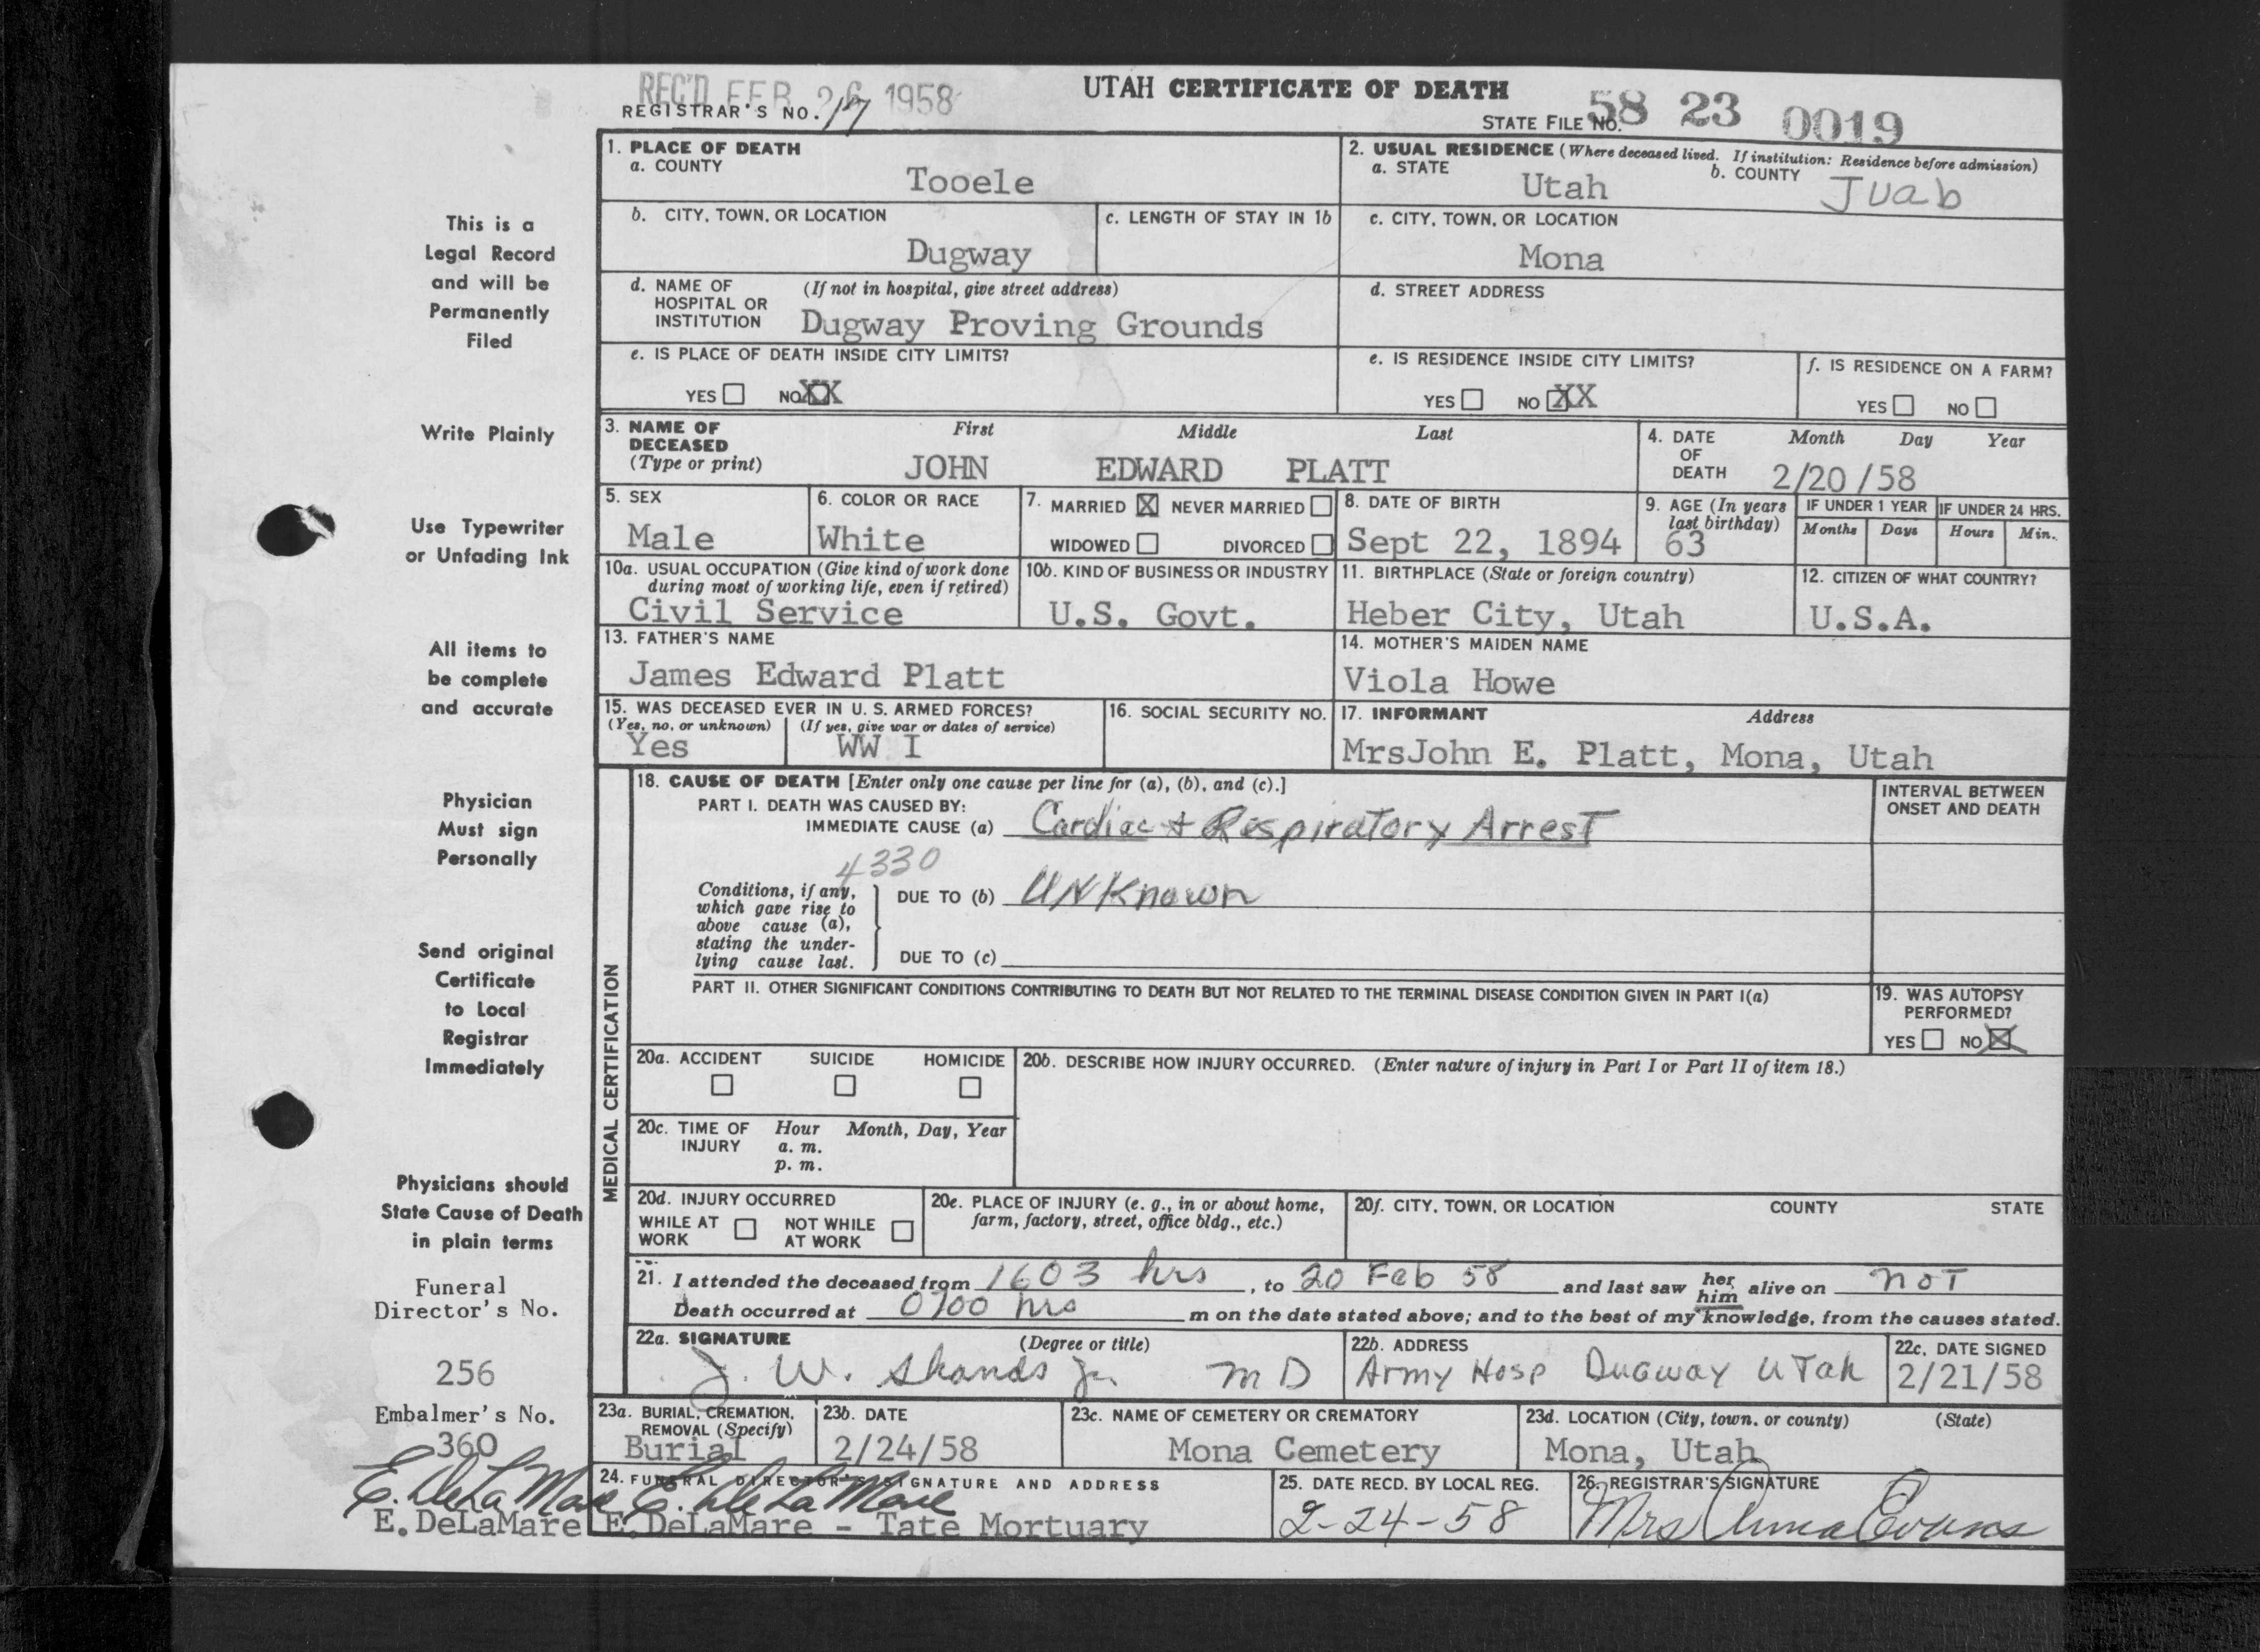 REC'D FEB 26 1958
UTAH CERTIFICATE OF DEATH
REGISTRAR'S NO. 17
STATE FILE NO. 58 23 0019
This is a
Legal Record
and will be
Permanently
Filed
Write Plainly
Use Typewriter
or Unfading Ink
All items to
be complete
and accurate
Physician
Must sign
Personally
Send original
Certificate
to Local
Registrar
Immediately
Physicians should
State Cause of Death
in plain terms
Funeral
Director's No.
256
Embalmer's No.
360
E. DeLaMare
E.DeLaMare
1. PLACE OF DEATH
a. COUNTY
Tooele
2. USUAL RESIDENCE (Where deceased lived. If institution: Residence before admission)
a. STATE
Utah
b. COUNTY
Juab
b. CITY, TOWN, OR LOCATION
Dugway
c. LENGTH OF STAY IN 1b
c. CITY, TOWN, OR LOCATION
Mona
d. NAME OF (If not in hospital, give street address)
HOSPITAL OR
INSTITUTION
Dugway Proving Grounds
d. STREET ADDRESS
e. IS PLACE OF DEATH INSIDE CITY LIMITS?
YES NO XX
e. IS RESIDENCE INSIDE CITY LIMITS?
YES NO XX
f. IS RESIDENCE ON A FARM?
YES NO
3. NAME OF DECEASED
(Type or print)
First Middle Last
JOHN EDWARD PLATT
4. DATE OF DEATH
Month Day Year
2/20/58
5. SEX
Male
6. COLOR OR RACE
White
7. MARRIED X NEVER MARRIED
WIDOWED DIVORCED
8. DATE OF BIRTH
Sept 22, 1894
9. AGE (In years last birthday)
63
IF UNDER 1 YEAR
Months Days
IF UNDER 24 HRS.
Hours Min.
10a. USUAL OCCUPATION (Give kind of work done
during most of working life, even if retired)
Civil Service
10b. KIND OF BUSINESS OR INDUSTRY
U.S. Govt.
11. BIRTHPLACE (State or foreign country)
Heber City, Utah
12. CITIZEN OF WHAT COUNTRY?
U.S.A.
13. FATHER'S NAME
James Edward Platt
14. MOTHER'S MAIDEN NAME
Viola Howe
15. WAS DECEASED EVER IN U. S. ARMED FORCES?
(Yes, no, or unknown) (If yes, give war or dates of service)
Yes WW I
16. SOCIAL SECURITY NO.
17. INFORMANT Address
MrsJohn E. Platt, Mona, Utah
MEDICAL CERTIFICATION
18. CAUSE OF DEATH [Enter only one cause per line for (a), (b), and (c).]
PART I. DEATH WAS CAUSED BY:
IMMEDIATE CAUSE (a) Cardiac + Respiratory Arrest
INTERVAL BETWEEN
ONSET AND DEATH
4330
Conditions, if any,
which gave rise to
above cause (a),
stating the under-
lying cause last.
DUE TO (b) UNKnown
DUE TO (c)
PART II. OTHER SIGNIFICANT CONDITIONS CONTRIBUTING TO DEATH BUT NOT RELATED TO THE TERMINAL DISEASE CONDITION GIVEN IN PART I(a)
19. WAS AUTOPSY
PERFORMED?
YES NO X
20a. ACCIDENT SUICIDE HOMICIDE
20b. DESCRIBE HOW INJURY OCCURRED. (Enter nature of injury in Part I or Part II of item 18.)
20c. TIME OF INJURY
Hour Month, Day, Year
a. m.
p. m.
20d. INJURY OCCURRED
WHILE AT WORK NOT WHILE AT WORK
20e. PLACE OF INJURY (e. g., in or about home,
farm, factory, street, office bldg., etc.)
20f. CITY, TOWN, OR LOCATION COUNTY STATE
21. I attended the deceased from 1603 hrs, to 20 Feb 58 and last saw her him alive on noT
Death occurred at 0700 hrs m on the date stated above; and to the best of my knowledge, from the causes stated.
22a. SIGNATURE (Degree or title)
J. W. Shands Jr. MD
22b. ADDRESS
Army Hosp Dugway UTah
22c. DATE SIGNED
2/21/58
23a. BURIAL, CREMATION,
REMOVAL (Specify)
Burial
23b. DATE
2/24/58
23c. NAME OF CEMETERY OR CREMATORY
Mona Cemetery
23d. LOCATION (City, town, or county) (State)
Mona, Utah
24. FUNERAL DIRECTOR'S SIGNATURE AND ADDRESS
E. DeLaMare
E.DeLaMare - Tate Mortuary
25. DATE RECD. BY LOCAL REG.
2-24-58
26. REGISTRAR'S SIGNATURE
Mrs Anna Evans